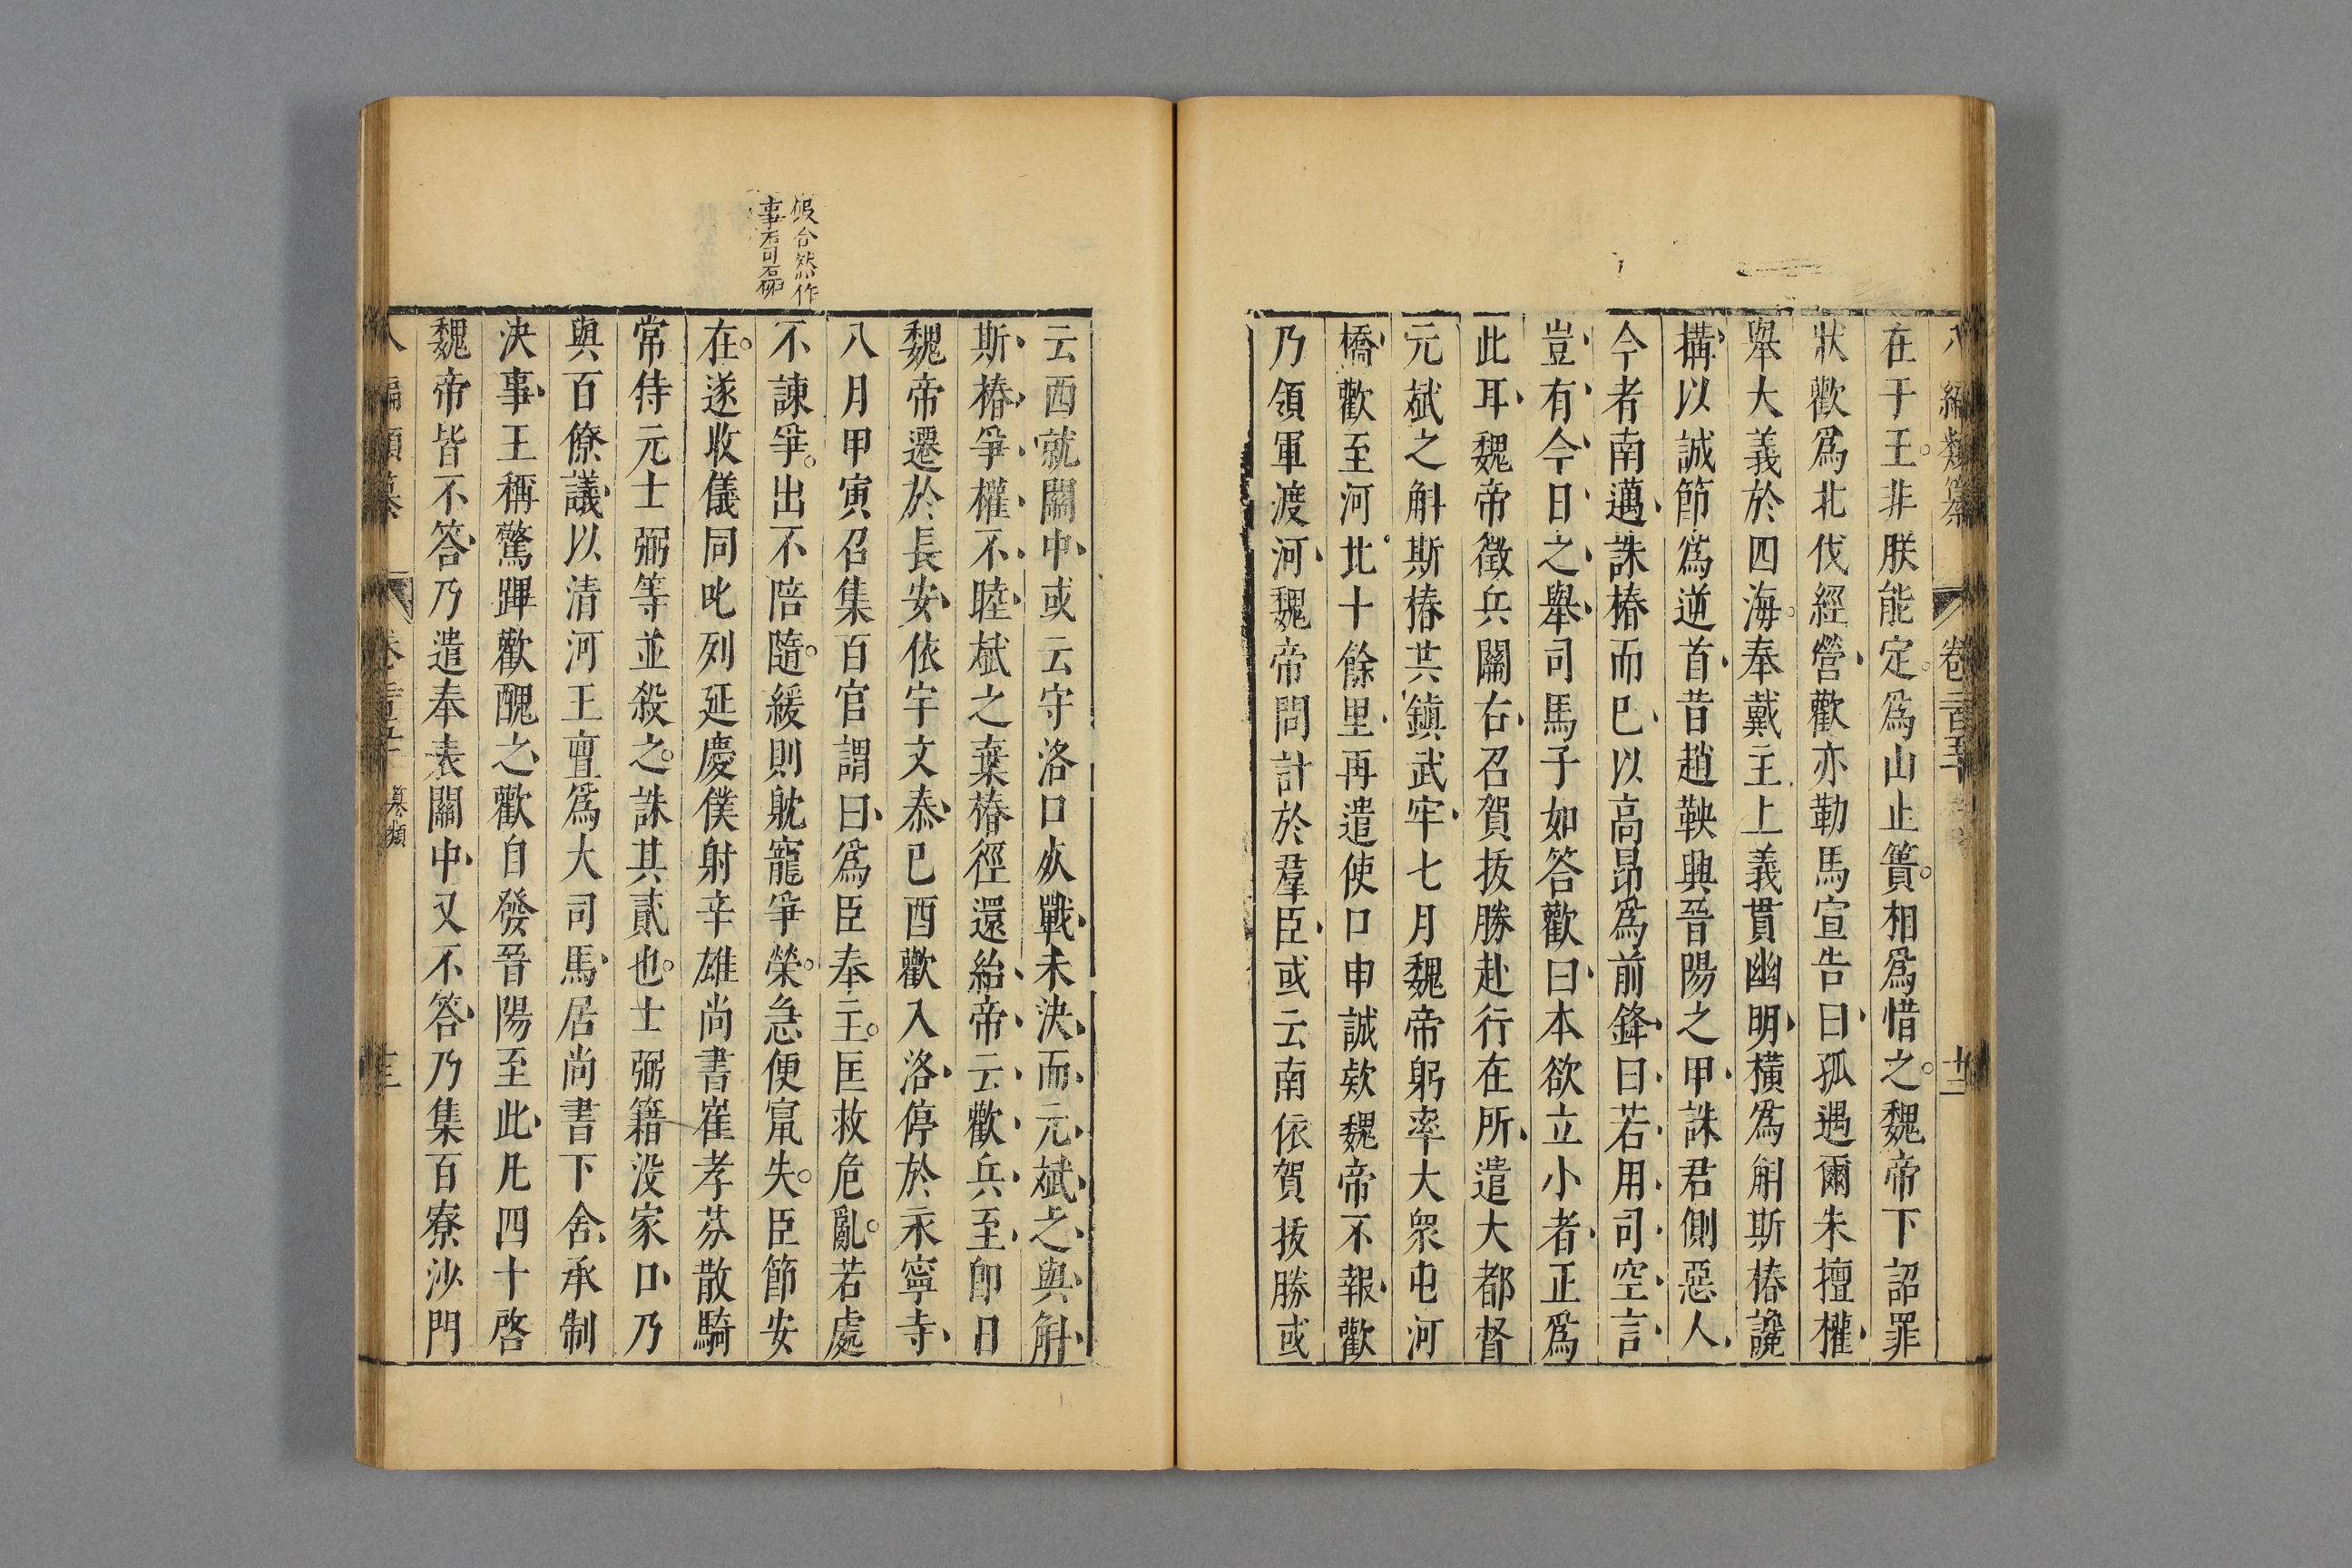 八編類纂 卷二百五十 十二
在于王非朕能定爲山止簣相爲惜之魏帝下詔罪
狀歡爲北伐經營歡亦勒馬宣告曰孤遇爾朱擅權
舉大義於四海奉戴主上義貫幽明橫爲斛斯椿讒
搆以誠節爲逆首昔趙鞅興晉陽之甲誅君側惡人
今者南邁誅椿而已以高昂爲前鋒曰若用司空言
豈有今日之舉司馬子如答歡曰本欲立小者正爲
此耳魏帝徵兵關右召賀拔勝赴行在所遣大都督
元斌之斛斯椿共鎮武牢七月魏帝躬率大衆屯河
橋歡至河北十餘里再遣使口申誠欵魏帝不報歡
乃領軍渡河魏帝問計於羣臣或云南依賀拔勝或
云西就關中或云守洛口死戰未決而元斌之與斛
斯椿爭權不睦斌之棄椿徑還紿帝云歡兵至即日
魏帝遷於長安依宇文泰己酉歡入洛停於永寧寺
八月甲寅召集百官謂曰爲臣奉主匡救危亂若處
不諫爭出不陪隨緩則躭寵爭榮急便竄失臣節安
在遂收儀同叱列延慶僕射辛雄尚書崔孝芬散騎
常侍元士弼等並殺之誅其貳也士弼籍没家口乃
與百僚議以清河王亶爲大司馬居尚書下舍承制
決事王稱驚蹕歡醜之歡自發晉陽至此凡四十啓
魏帝皆不答乃遣奉表關中又不答乃集百寮沙門
八編類纂 卷二百五十 十三